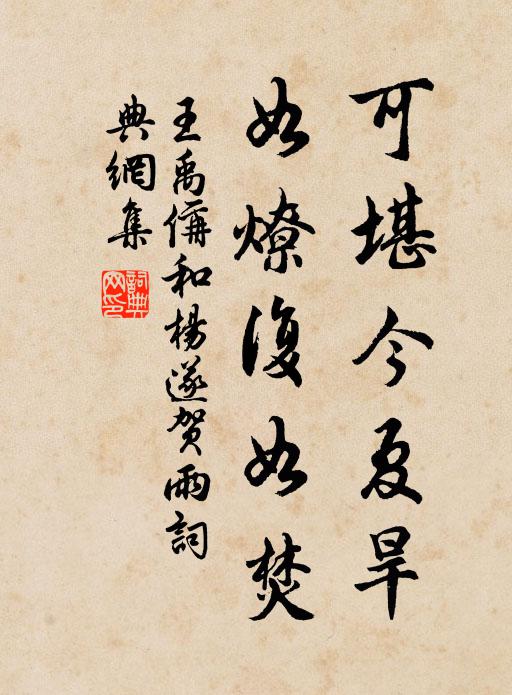 可堪今夏旱
如燎復如焚
王禹偁和楊遂贺雨詞
典網集
詞典
网印